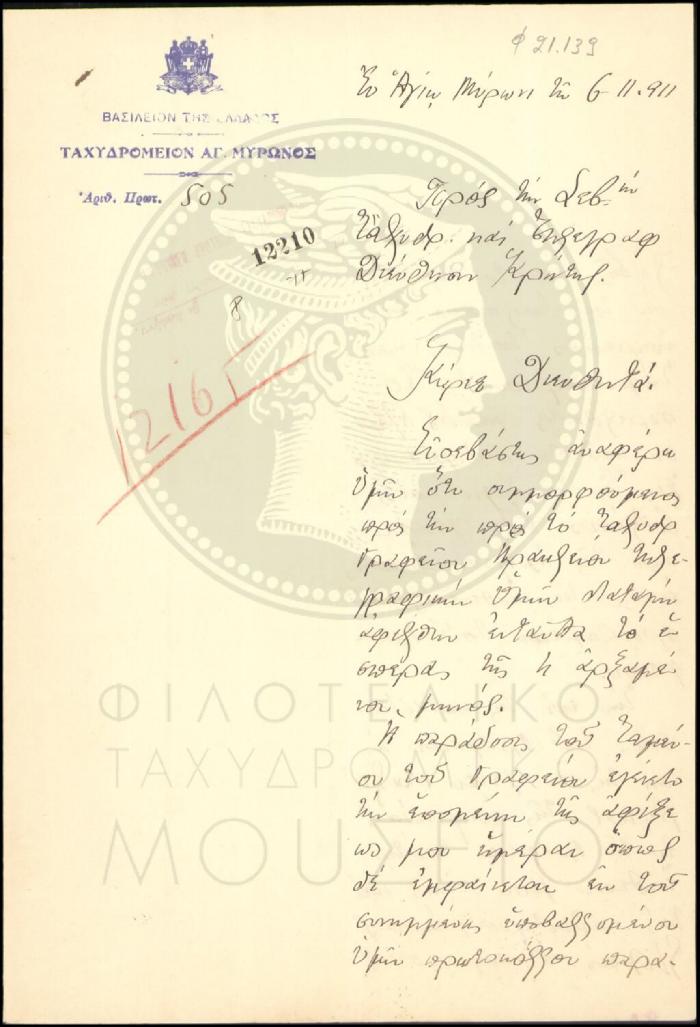 φ 21.139
ΒΑΣΙΛΕΙΟΝ ΤΗΣ ΕΛΛΑΔΟΣ
ΤΑΧΥΔΡΟΜΕΙΟΝ ΑΓ. ΜΥΡΩΝΟΣ
Ἀριθ. Πρωτ. 505
12210
8
12165
Ἐν Ἁγίῳ Μύρωνι τῇ 6-11-911
Πρός τήν Σεβ-ήν
Ταχυδρ. καί Τηλεγραφ
Διεύθυνσιν Κρήτης.
Κύριε Διευθυντά.
Εὐσεβάστως ἀναφέρω
ὑμῖν ὅτι συμμορφούμενος
πρός τήν πρός τό Ταχυδρ
Γραφεῖον Ἡρακλείου τηλε-
γραφικήν ὑμῶν διαταγήν
ἀφίχθην ἐνταῦθα τό ἑ
σπέρας τῆς 4 ἀρξαμέ
νου μηνός.
Ἡ παράδοσις τοῦ Ταμεί-
ου τοῦ Γραφείου ἐγένετο
τήν ἑπομένην τῆς ἀφίξε
ώς μου ἡμέραν ὅπως
δέ ἐμφαίνεται ἐκ τοῦ
συνημμένως ὑποβαλλομένου
ὑμῖν πρωτοκόλλου παρα-
ΦΙΛΟΤΕΛΙΚΟ
ΤΑΧΥΔΡΟΜΙΚΟ
ΜΟΥΣΕΙΟ